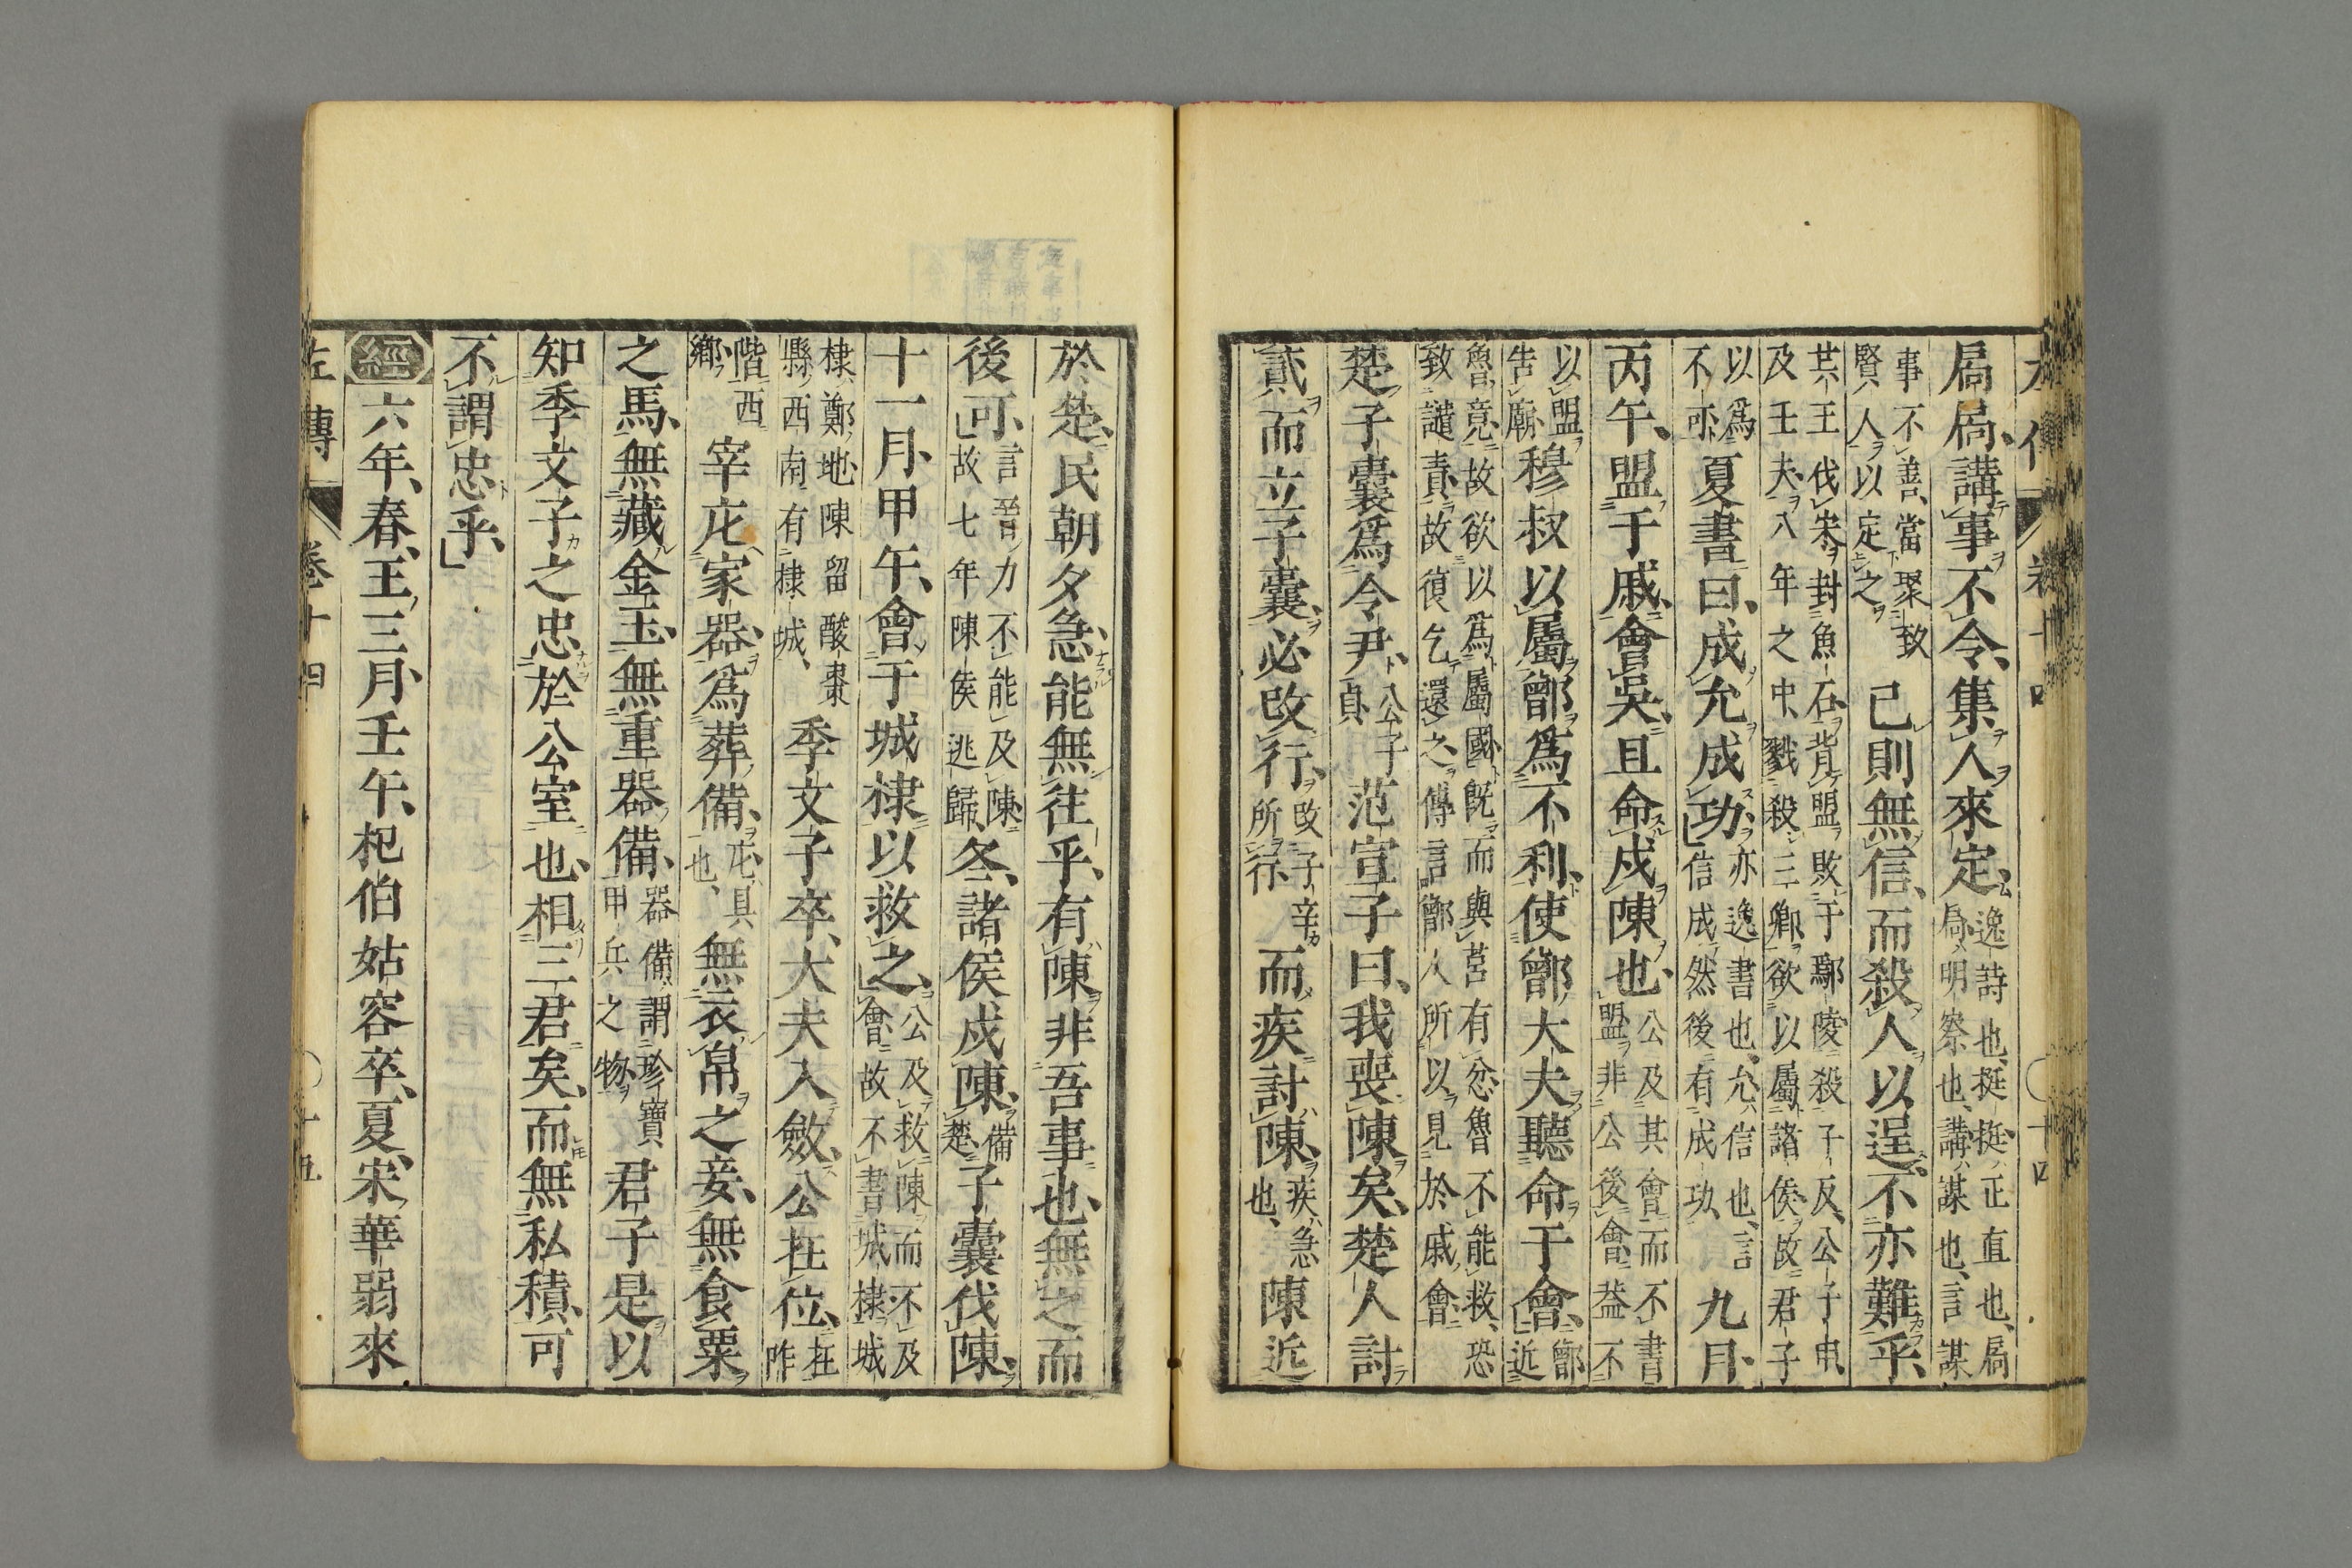 扃扃講事不令集人來定逸詩也挺挺正直也扃
扃明察也講謀也言謀
事不善當聚致
賢人以定之己則無信而殺人以逞不亦難乎
共王伐宋封魚石背盟敗于鄢陵殺子反公子申
及壬夫八年之中戮殺三卿欲以屬諸侯故君子
以爲
不可夏書曰成允成功亦逸書也允信也言
信成然後有成功九月
丙午盟于戚會吳且命戍陳也公及其會而不書
盟非公後會蓋不
以盟
告廟穆叔以屬鄫爲不利使鄫大夫聽命于會鄫
近
魯竟故欲以爲屬國旣而與莒有忿魯不能救恐
致譴責故復乞還之傳言鄫人所以見於戚會
楚子囊爲令尹公子
貞范宣子曰我喪陳矣楚人討
貳而立子囊必改行改子辛
所行而疾討陳疾急
也陳近
於楚民朝夕急能無往乎有陳非吾事也無之而
後可言晉力不能及陳
故七年陳侯逃歸冬諸侯戍陳備
楚子囊伐陳
十一月甲午會于城棣以救之公及救陳而不及
會故不書城棣城
棣鄭地陳留酸棗
縣西南有棣城季文子卒大夫入斂公在位在
阼
階西
鄉宰庀家器爲葬備庀具
也無衣帛之妾無食粟
之馬無藏金玉無重器備器備謂珍寶
甲兵之物君子是以
知季文子之忠於公室也相三君矣而無私積可
不謂忠乎
經六年春王三月壬午杞伯姑容卒夏宋華弱來
左傳 卷十四 十五